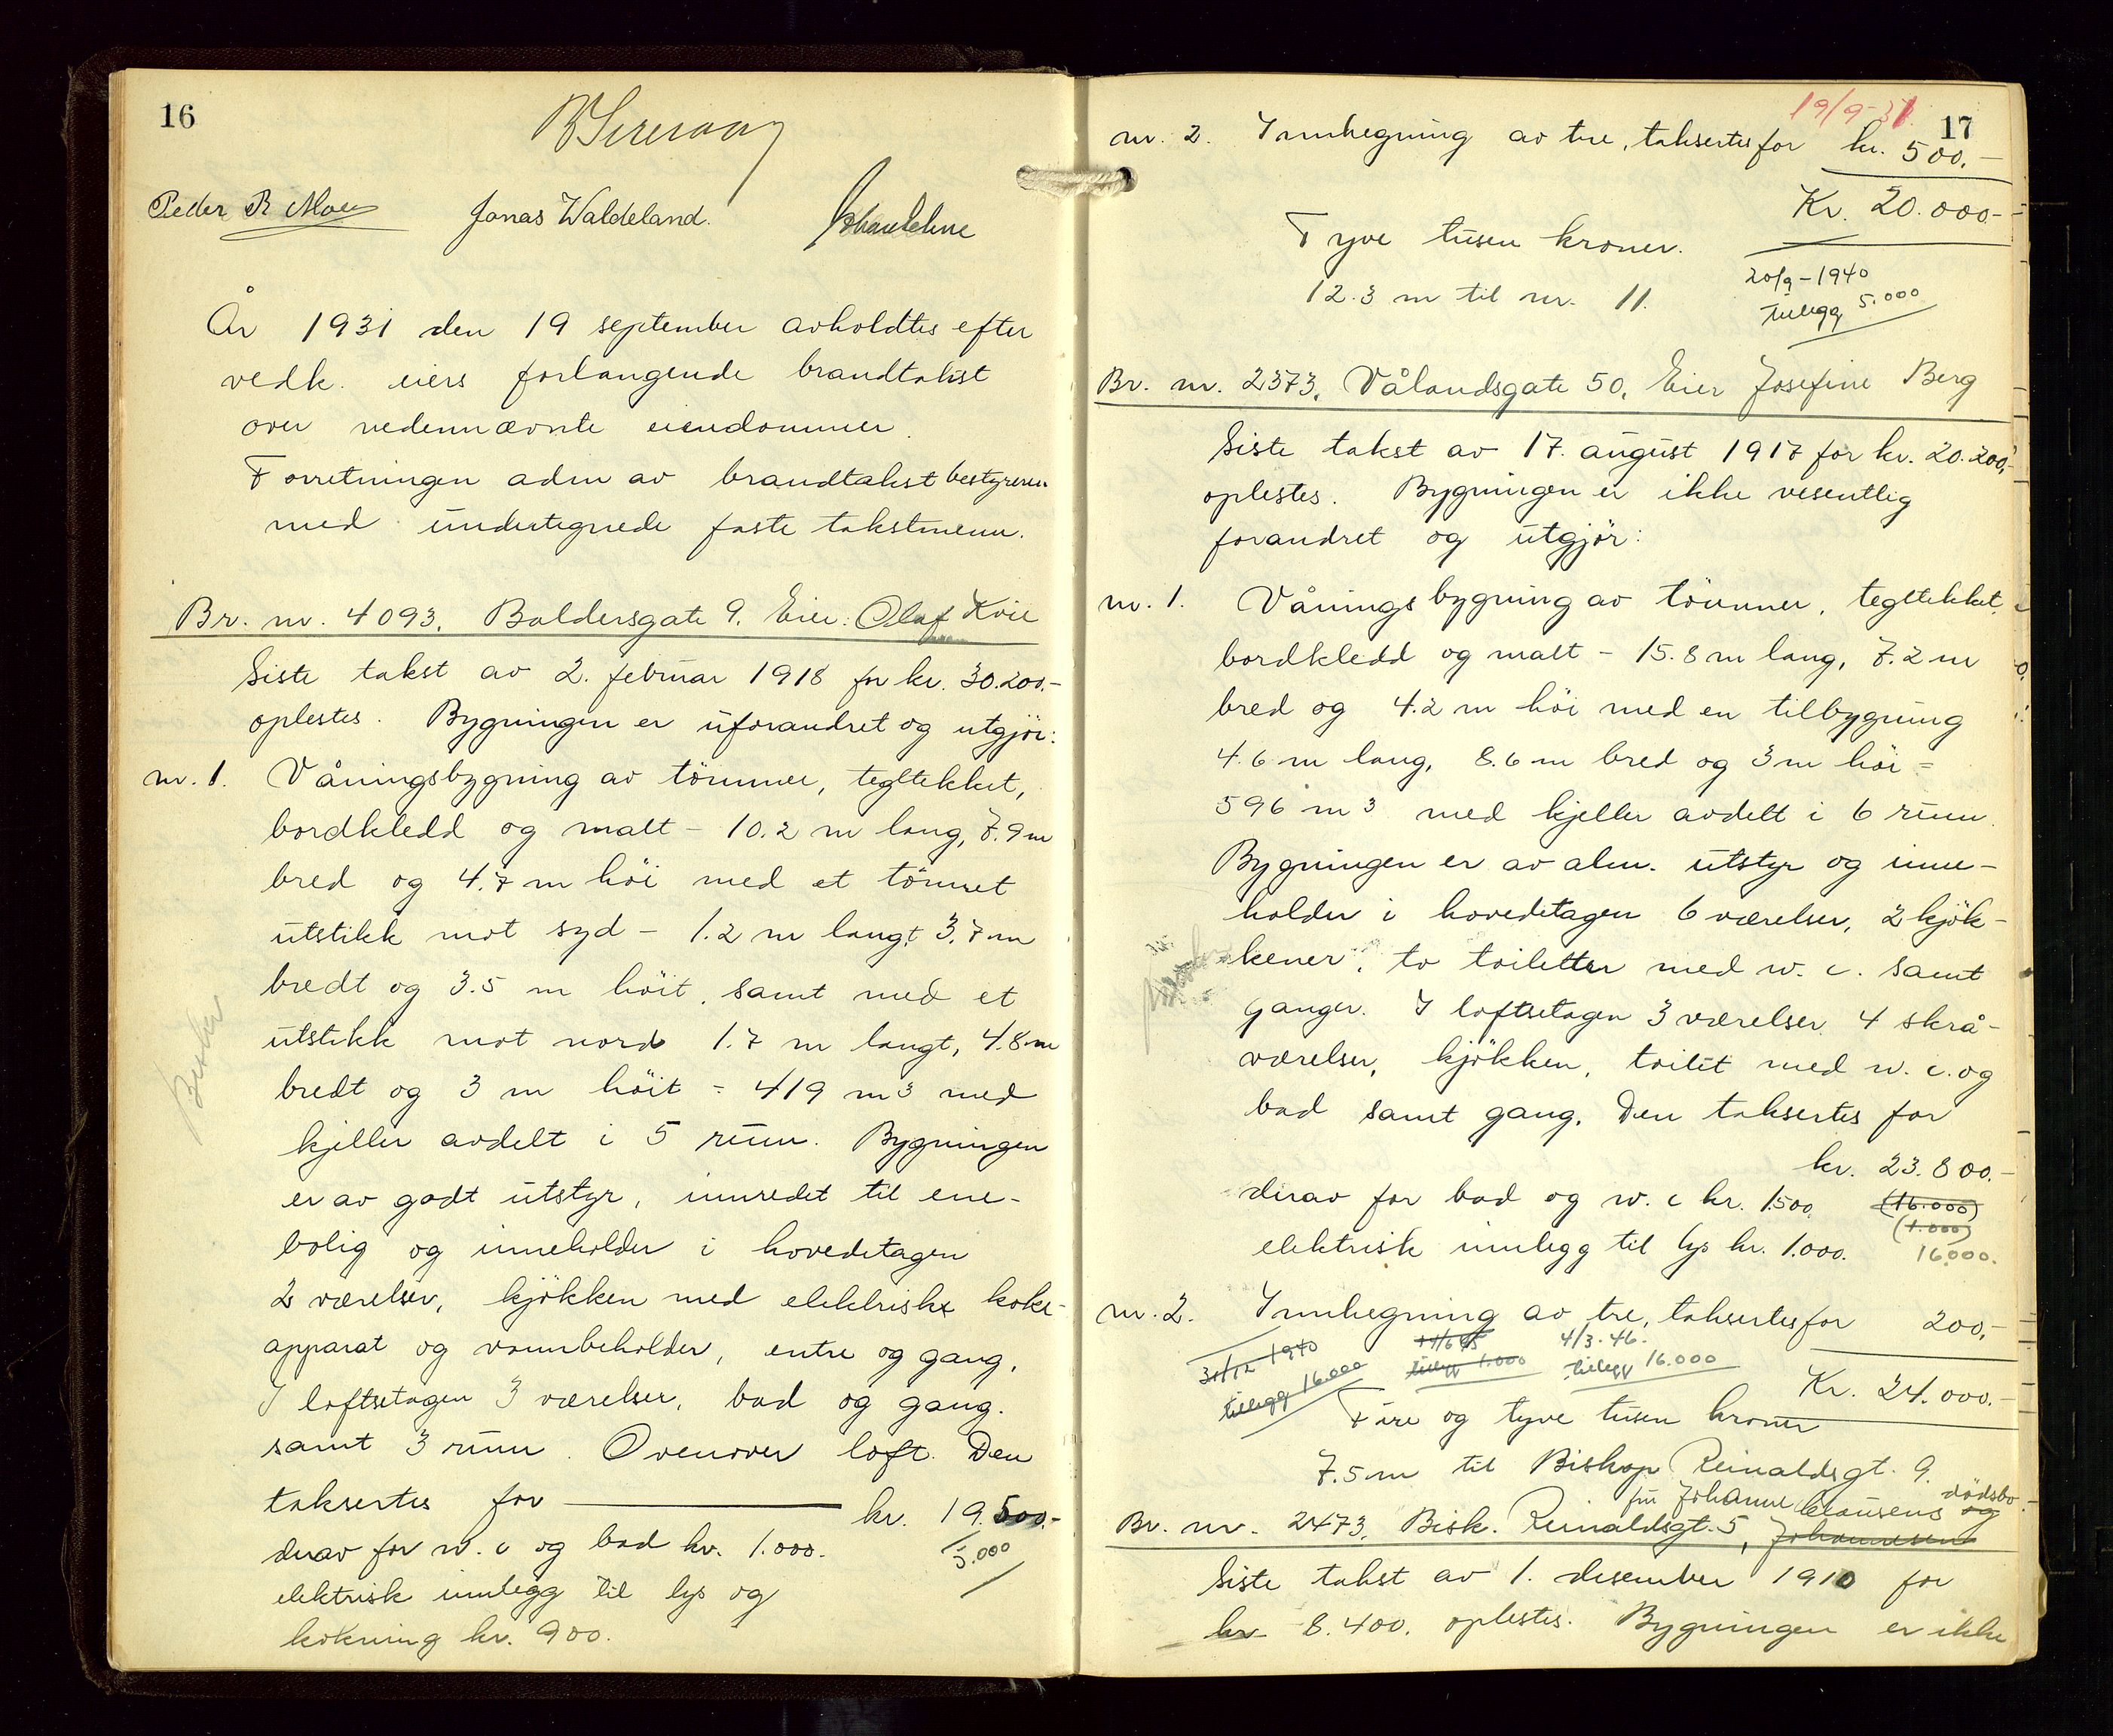 16
Peder R Moe
Jonas Waldeland.
År 1931 den 19 september avholdtes efter
vedk. eiers forlangende brandtakst
over nedennævnte eiendommer.
Forretningen adm av brandtakstbestyreren
med undertegnede faste takstmenn.
Br. nr. 4093, Baldersgate 9. Eier: Olaf Kvie
Siste takst av 2. februar 1918 for kr. 30.200.-
oplestes. Bygningen er uforandret og utgjör:
nr. 1. Våningsbygning av tömmer, tegltekket,
bordkledd og malt - 10.2 m lang, 7.9 m
bred og 4.7 m höi med et tömret
utstikk mot syd - 1.2 m langt, 3.7 m
bredt og 3.5 m höit, samt med et
utstikk mot nord 1.7 m langt, 4.8 m
bredt og 3 m höit = 419 m3 med
kjeller avdelt i 5 rum. Bygningen
er av godt utstyr, innredet til ene-
bolig og inneholder i hovedetagen
2 værelser, kjökken med elektrisk koke-
apparat og vannbeholder, entre og gang,
I loftsetagen 3 værelser, bad og gang.
samt 3 rum. Ovenover loft. Den
taksertes for kr. 19.500.-
derav for w.c og bad kr. 1.000.
5.000
elektrisk innlegg til lys og
kokning kr. 900.
19/9-31
17
nr. 2. Innhegning av tre, taksertes for kr. 500.-
Kr. 20.000.-
Tyve tusen kroner.
20/9-1940
12.3 m til nr. 11.
tillegg 5.000
Br. nr. 2373, Vålandsgate 50, Eier Josefine Berg
Siste takst av 17. august 1917 for kr. 20.200,-
oplestes. Bygningen er ikke vesentlig
forandret og utgjör:
nr. 1. Våningsbygning av tömmer, tegltekket,
bordkledd og malt - 15.8 m lang, 7.2 m
bred og 4.2 m höi med en tilbygning
4.6 m lang, 8.6 m bred og 3 m höi =
596 m3 med kjeller avdelt i 6 rum.
Bygningen er av alm. utstyr og inne-
holder i hovedetagen 6 værelser, 2 kjök-
kener, to toiletter med w.c. samt
ganger. I loftsetagen 3 værelser, 4 skrå-
værelser, kjökken, toilet med w.c. og
bad samt gang. Den taksertes for
kr. 23.800.-
derav for bad og w.c kr. 1500. (16.000)
(1.000)
elektrisk innlegg til lys kr. 1.000. 16000.
nr. 2. Innhegning av tre, taksertes for 200,-
31/12 1940 4/3-46.
tillegg 16.000 tillegg 1.000 tillegg 16.000
Kr. 24.000.-
Fire og tyve tusen kroner
7.5 m til Biskop Reinaldsgt. 9.
fru Johanne Clausens dödsbo
Br. nr. 2473, Bisk. Reinaldsgt. 5, Johannesens og
Siste takst av 1. desember 1910 for
kr. 8.400. oplestes. Bygningen er ikke